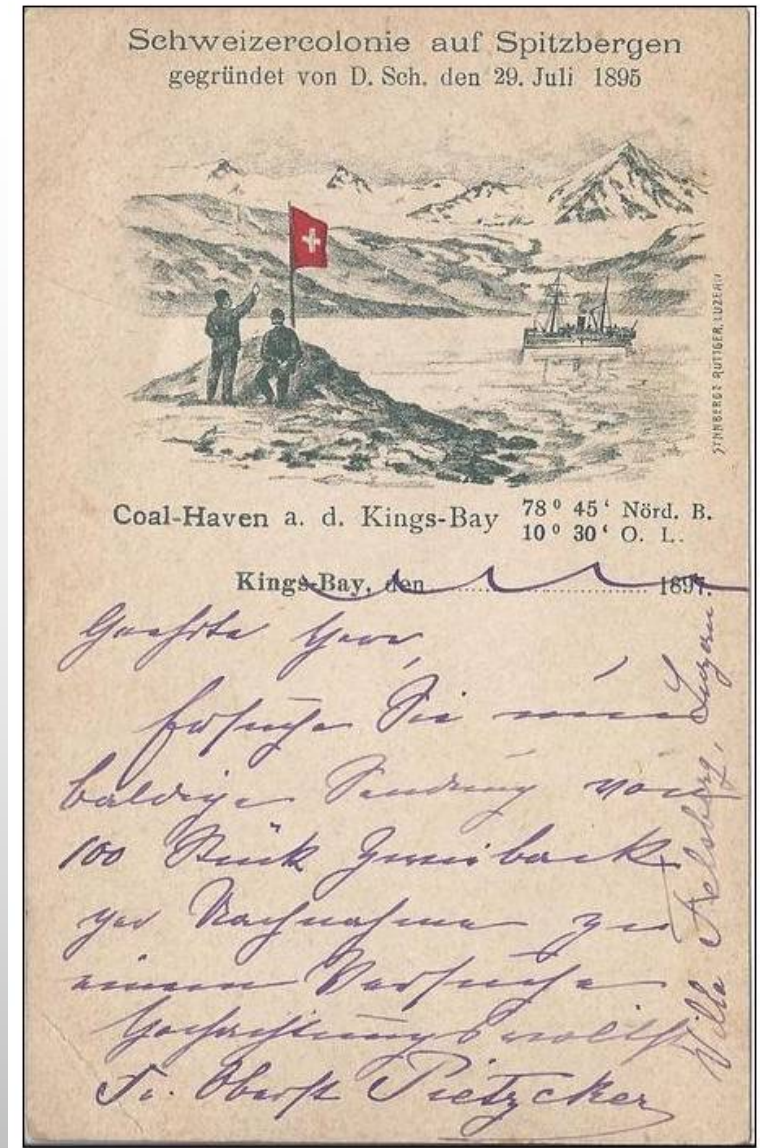 Schweizercolonie auf Spitzbergen
gegründet von D. Sch. den 29. Juli 1895
STNNBERG & RÜTTGER, LUZERN
Coal-Haven a. d. Kings-Bay
78° 45‘ Nörd. B.
10° 30‘ O. L.
Kings-Bay, den 1897.
Geehrter Herr,
Ersuche Sie um
baldige Sendung von
100 Stück Zwieback
per Nachnahme zu
einem Versuche
Hochachtungsvollst
Fr. Oberst Pietzcker
Villa Felsberg, Luzern